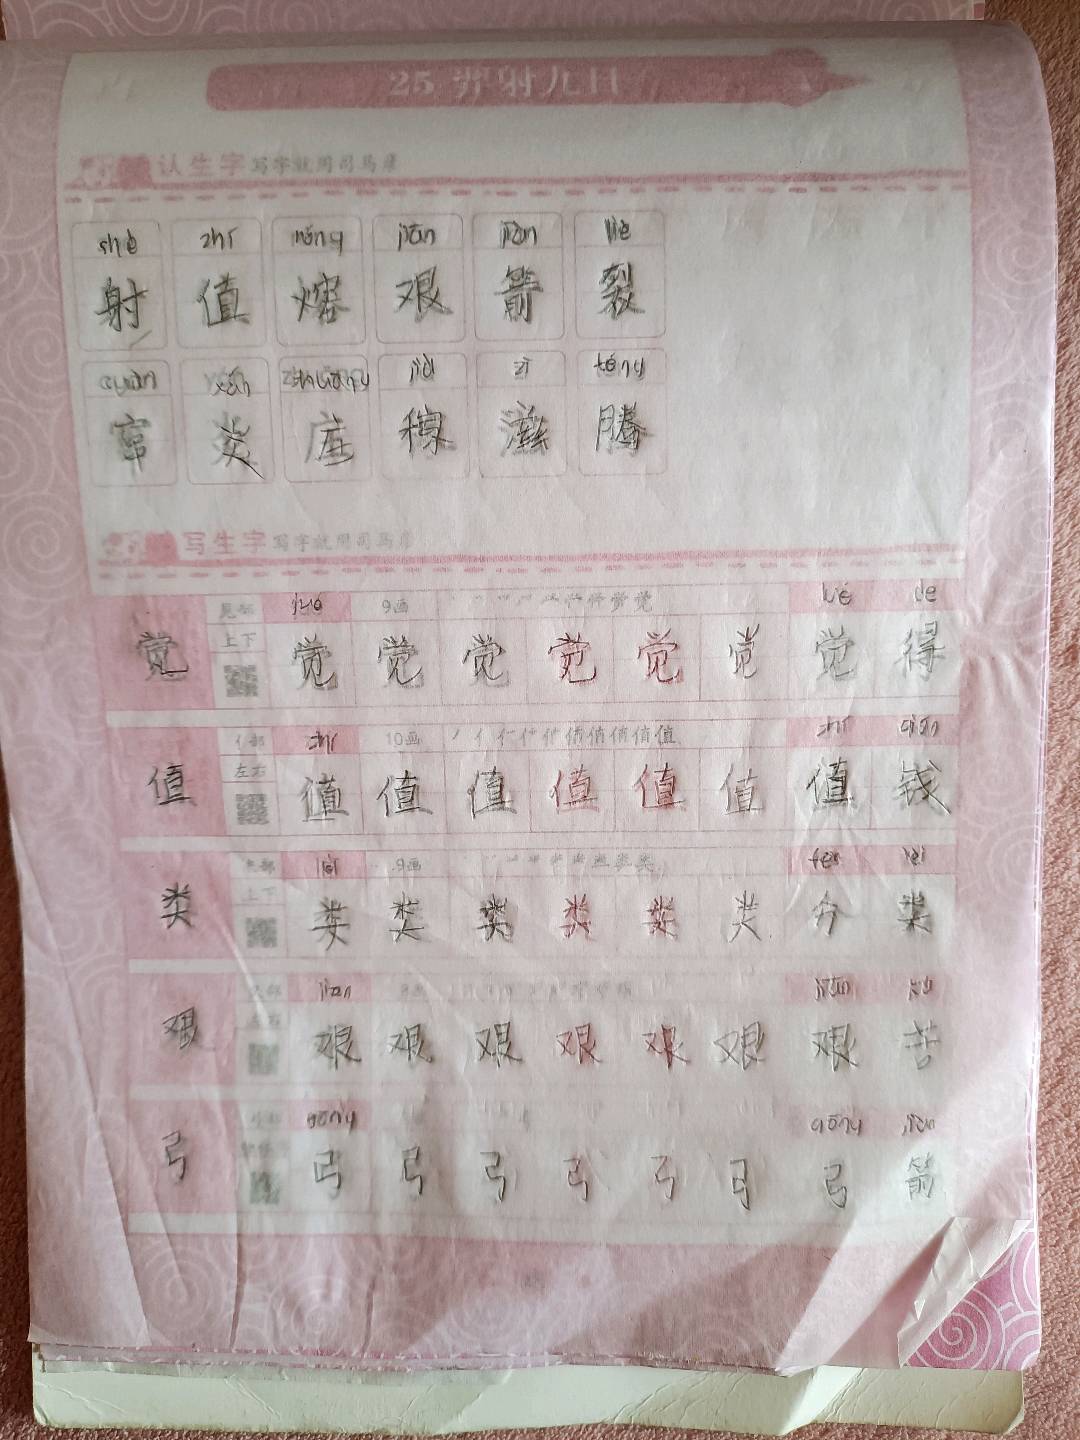 25 羿射九日
认生字 写字就用司马彦
shè zhí róng jiān jiàn liè
射 值 熔 艰 箭 裂
yán zī téng
窜 炎 庄 稼 滋 腾
写生字 写字就用司马彦
见部 jué 9画 jué de
上下
觉 觉 觉 觉 觉 觉 觉 觉 得
亻部 zhí 10画 zhí qián
左右
值 值 值 值 值 值 值 值 钱
lèi 9画 fēn lèi
上下
类 类 类 类 类 类 类 分 类
jiān jiān kǔ
艰 艰 艰 艰 艰 艰 艰 艰 苦
gōng gōng jiàn
弓 弓 弓 弓 弓 弓 弓 弓 箭